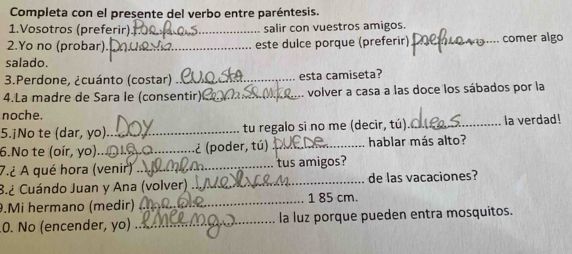 Completa con el presente del verbo entre paréntesis.
1.Vosotros (preferir) ............ salir con vuestros amigos.
2.Yo no (probar). ............ este dulce porque (preferir) ............ comer algo
salado.
3.Perdone, ¿cuánto (costar) ..cuesta............ esta camiseta?
4.La madre de Sara le (consentir) ............ volver a casa a las doce los sábados por la
noche.
5.¡No te (dar, yo)...Doy............ tu regalo si no me (decir, tú)..dices............ la verdad!
6.No te (oír, yo)...oiga............¿ (poder, tú) PUEDe............ hablar más alto?
7.¿ A qué hora (venir) ..venen............ tus amigos?
8.¿ Cuándo Juan y Ana (volver) ............ de las vacaciones?
9.Mi hermano (medir) ............ 1 85 cm.
10. No (encender, yo) ............ la luz porque pueden entra mosquitos.